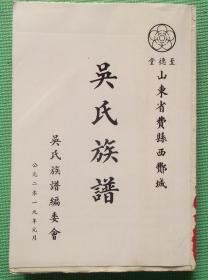 至德堂
山東省費縣西鄪城
吳氏族譜
吳氏族譜編委會
公元二零一九年元月